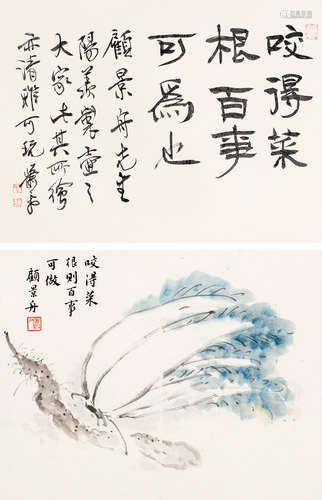 咬得菜
根百事
可為也
顧景舟先生
陽羨製壺之
大家此其所繪
亦清雅可玩
咬得菜
根則百事
可做
顧景舟